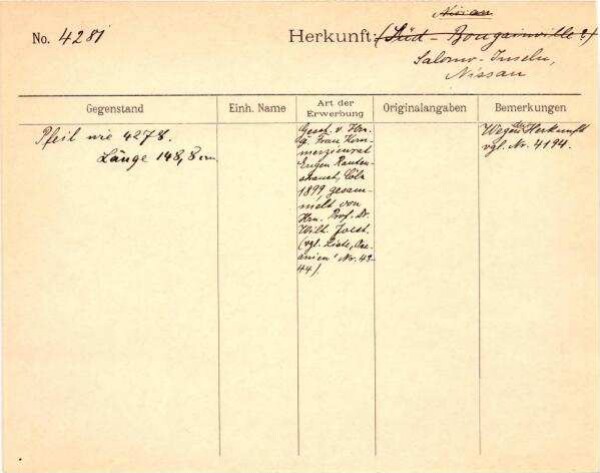 Nissan
No. 4281
Herkunft: (Süd - Bougainville?)
Salomo-Inseln,
Nissan
Gegenstand
Einh. Name
Art der
Erwerbung
Originalangaben
Bemerkungen
Pfeil wie 4278.
Länge 148,8 cm
Gesch. v. Hrn.
u. Frau Kom-
merzienrat
Eugen Rauten-
strauch, Cöln
1899 gesam-
melt von
Hrn. Prof. Dr.
Wilh. Joest.
(vgl. Liste, Oze-
anien Nr. 43-
44).
Wegen der Herkunft
vgl. Nr. 4194.